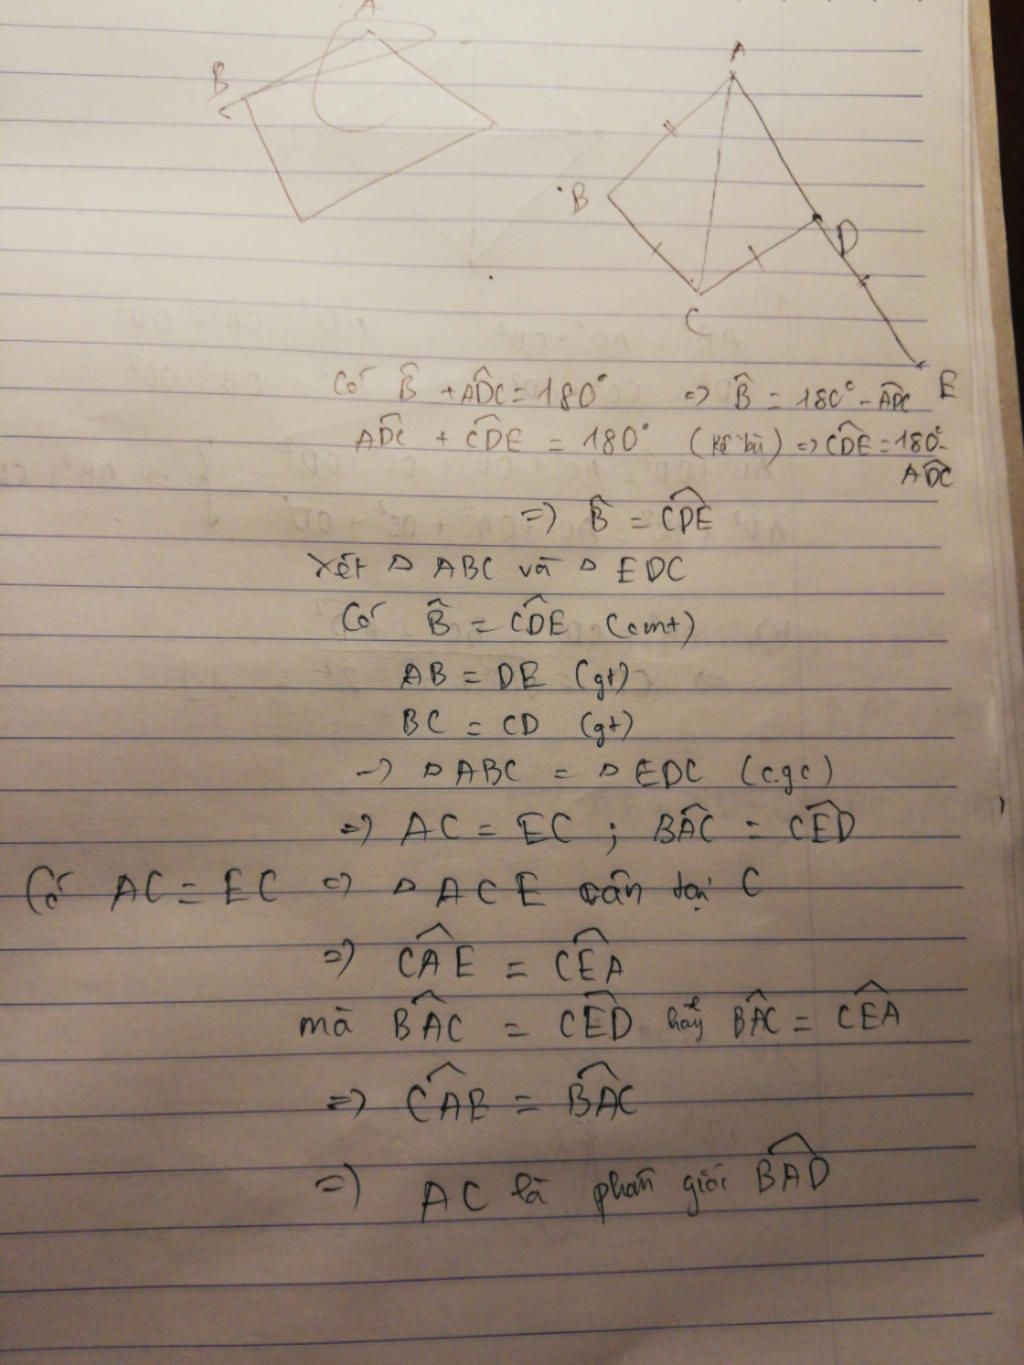 A
B
A
B
D
C
E
Có B̂ + ADĈ = 180° => B̂ = 180° - ADĈ
ADĈ + CDÊ = 180° (kề bù) => CDÊ = 180° -
ADĈ
=> B̂ = CDÊ
Xét △ ABC và △ EDC
Có B̂ = CDÊ (cmt)
AB = DE (gt)
BC = CD (gt)
-> △ ABC = △ EDC (c.gc)
=> AC = EC ; BAĈ = CED̂
Có AC = EC => △ ACE cân tại C
=> CAÊ = CEÂ
mà BAĈ = CED̂ hay BAĈ = CEÂ
=> CAÊ = BAĈ
=> AC là phân giác BAD̂